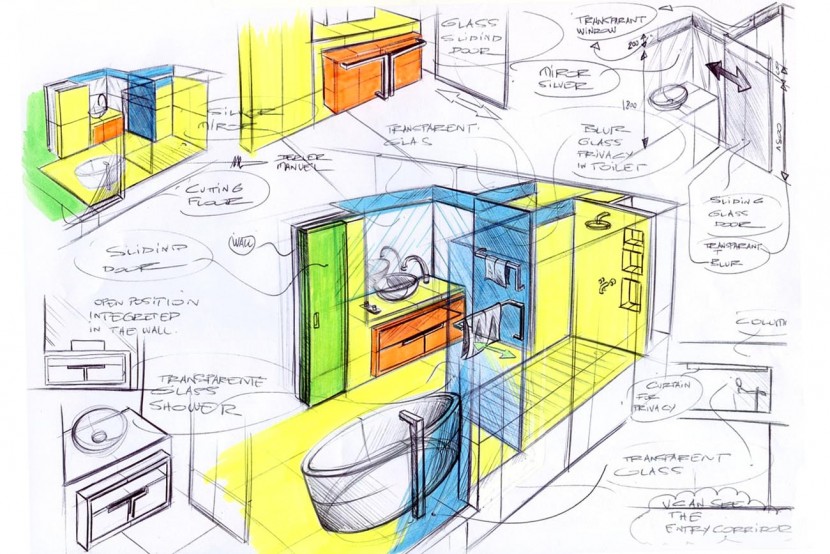 GLASS
SLIDIND
DOOR
TRANSPARANT
WINDOW
200
MIROR
SILVER
1800
SILVER
MIROR
TRANSPARENT
GLAS
BLUR
GLASS
PRIVACY
IN TOILET
MANUEL
CUTTING
FLOOR
SLIDING
GLASS
DOOR
TRANSPARANT
+
BLUR
SLIDIND
DOOR
WALL
OPEN POSITION
INTEGRETED
IN THE WALL.
TRANSPARENTE
GLASS
SHOWER
CURTAIN
FOR
PRIVACY
TRANSPARENT
GLASS
V CAN SEE
THE
ENTRY CORRIDOR